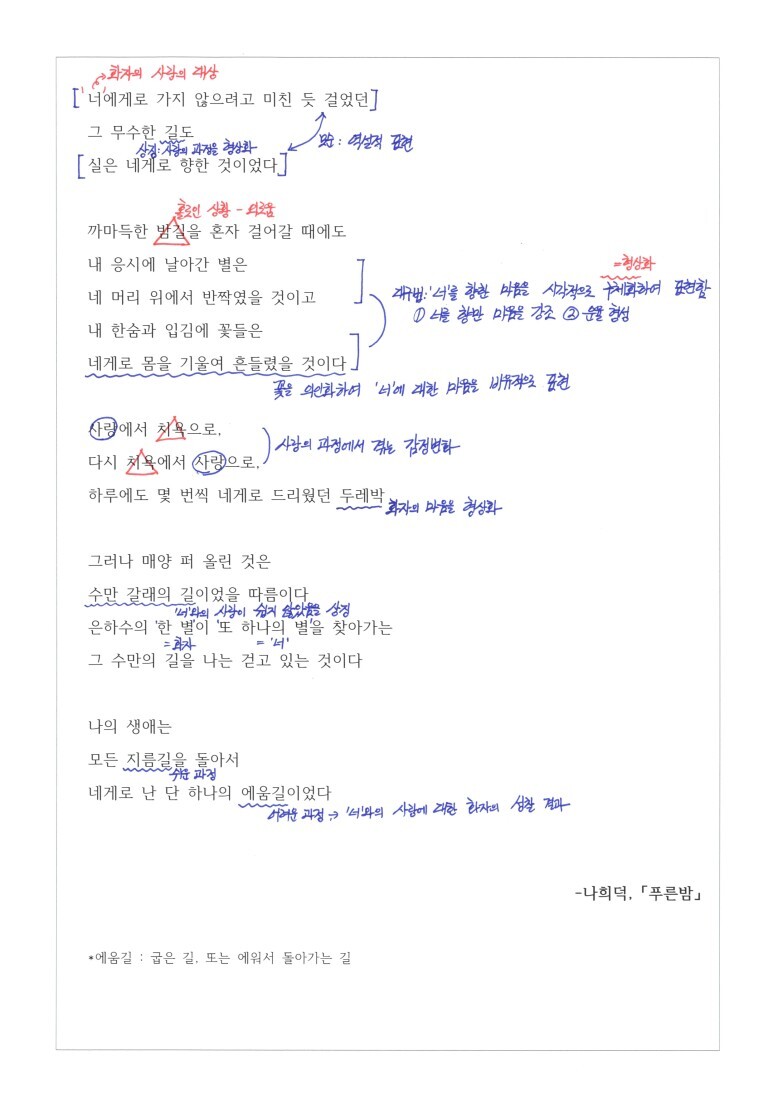 화자의 사랑의 대상
너에게로 가지 않으려고 미친 듯 걸었던
그 무수한 길도
상징: 사랑의 과정을 형상화
모순: 역설적 표현
실은 네게로 향한 것이었다
홀로인 상황 - 외로움
까마득한 밤길을 혼자 걸어갈 때에도
내 응시에 날아간 별은
네 머리 위에서 반짝였을 것이고
내 한숨과 입김에 꽃들은
네게로 몸을 기울여 흔들렸을 것이다
=형상화
대구법: '너'를 향한 마음을 시각적으로 구체화하여 표현함
① 너를 향한 마음을 강조 ② 운율 형성
꽃을 의인화하여 '너'에 대한 마음을 비유적으로 표현
사랑에서 치욕으로,
다시 치욕에서 사랑으로,
사랑의 과정에서 겪는 감정변화
하루에도 몇 번씩 네게로 드리웠던 두레박
화자의 마음을 형상화
그러나 매양 퍼 올린 것은
수만 갈래의 길이었을 따름이다
'너'와의 사랑이 쉽지 않았음을 상징
은하수의 '한 별'이 '또 하나의 별'을 찾아가는
=화자 = '너'
그 수만의 길을 나는 걷고 있는 것이다
나의 생애는
모든 지름길을 돌아서
쉬운 과정
네게로 난 단 하나의 에움길이었다
어려운 과정 → '너'와의 사랑에 대한 화자의 성찰 결과
-나희덕, 「푸른밤」
*에움길 : 굽은 길, 또는 에워서 돌아가는 길